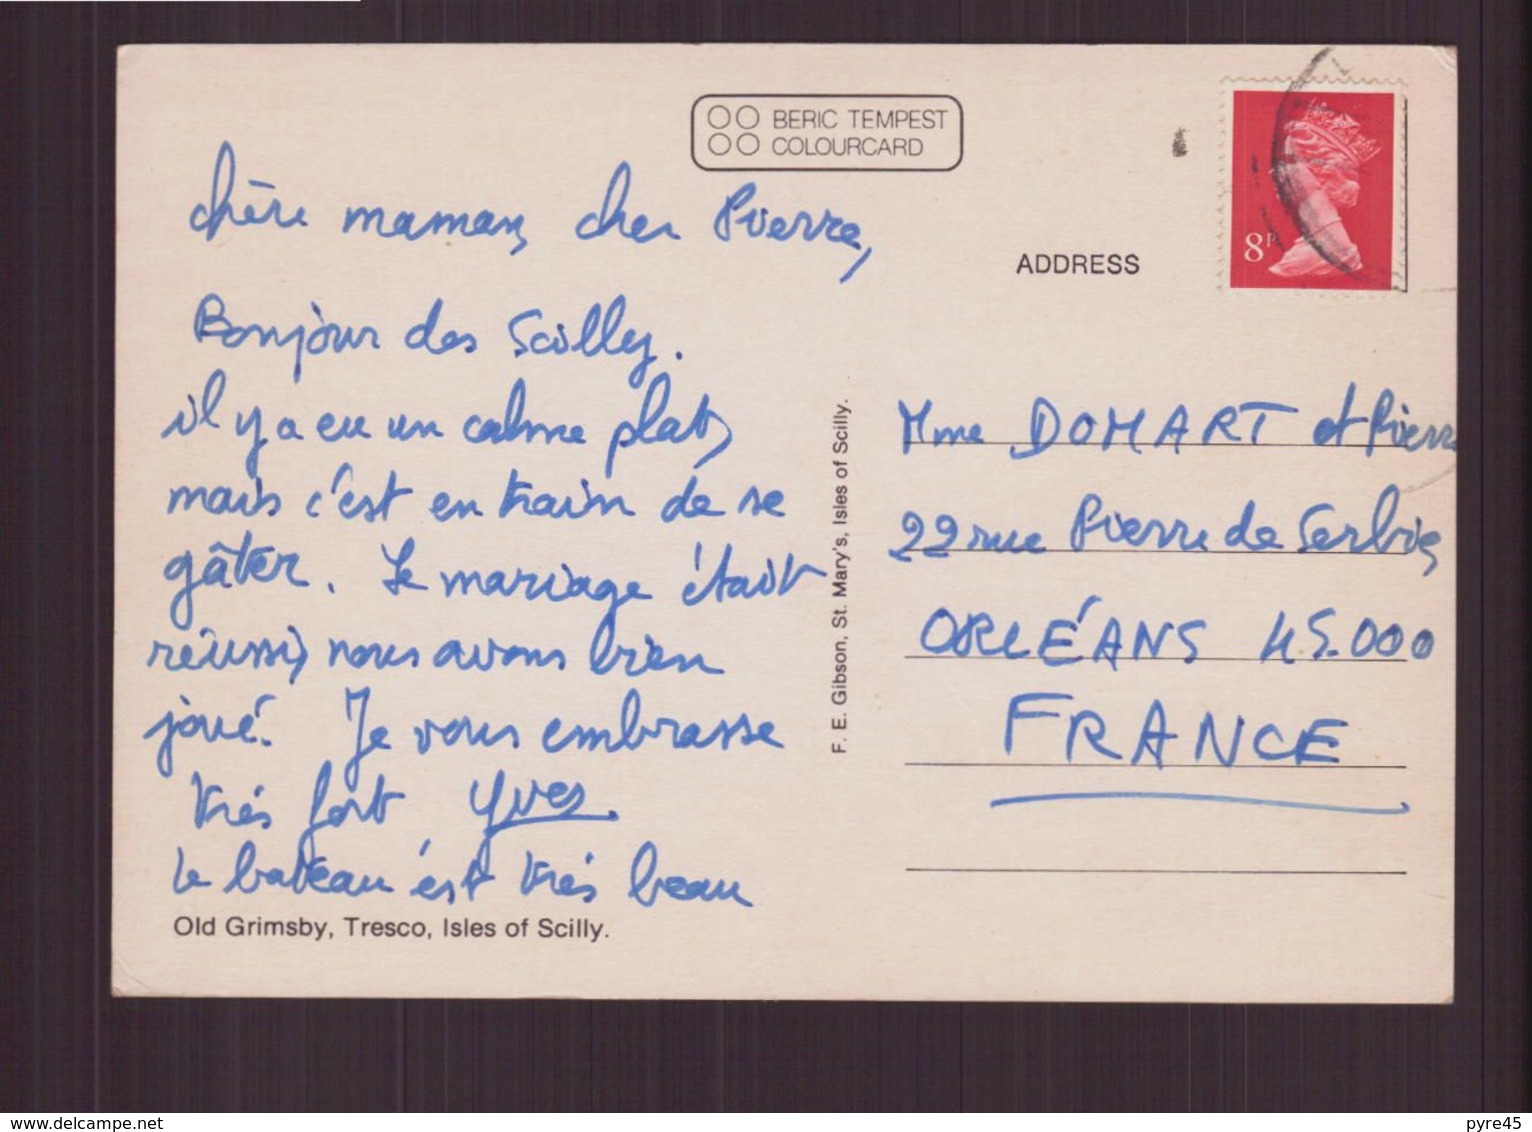 BERIC TEMPEST
COLOURCARD
chère maman, cher Pierre,
Bonjour des Scilly.
il y a eu un calme plat,
mais c'est en train de se
gâter. Le mariage était
réussi, nous avons bien
joué. Je vous embrasse
très fort Yves.
Le bateau est très beau
Old Grimsby, Tresco, Isles of Scilly.
F. E. Gibson, St. Mary's, Isles of Scilly.
8P
ADDRESS
Mme DOMART et Pierre
22 rue Pierre de Serbie,
ORLÉANS 45.000
FRANCE
www.delcampe.net
pyre45